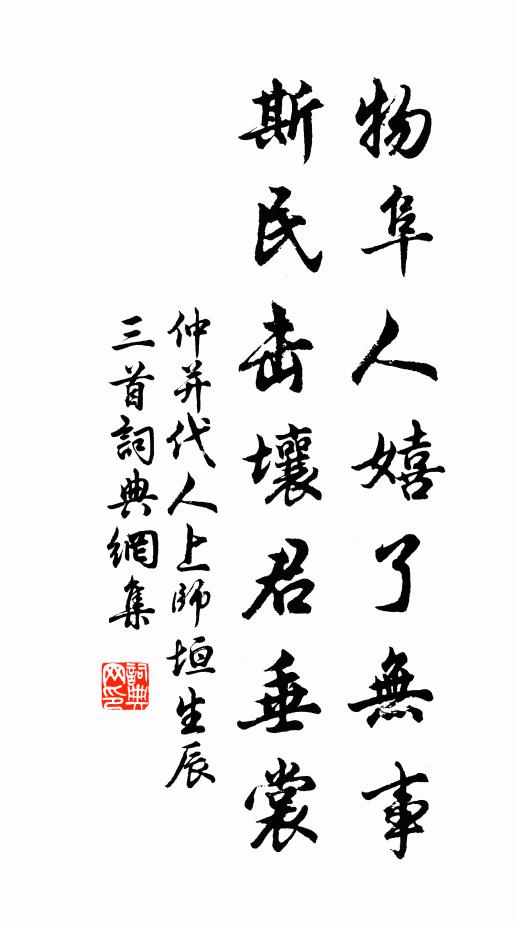 物阜人嬉了無事
斯民击壤君垂裳
仲并代人上師垣生辰
三首詞典網集
詞典
网印